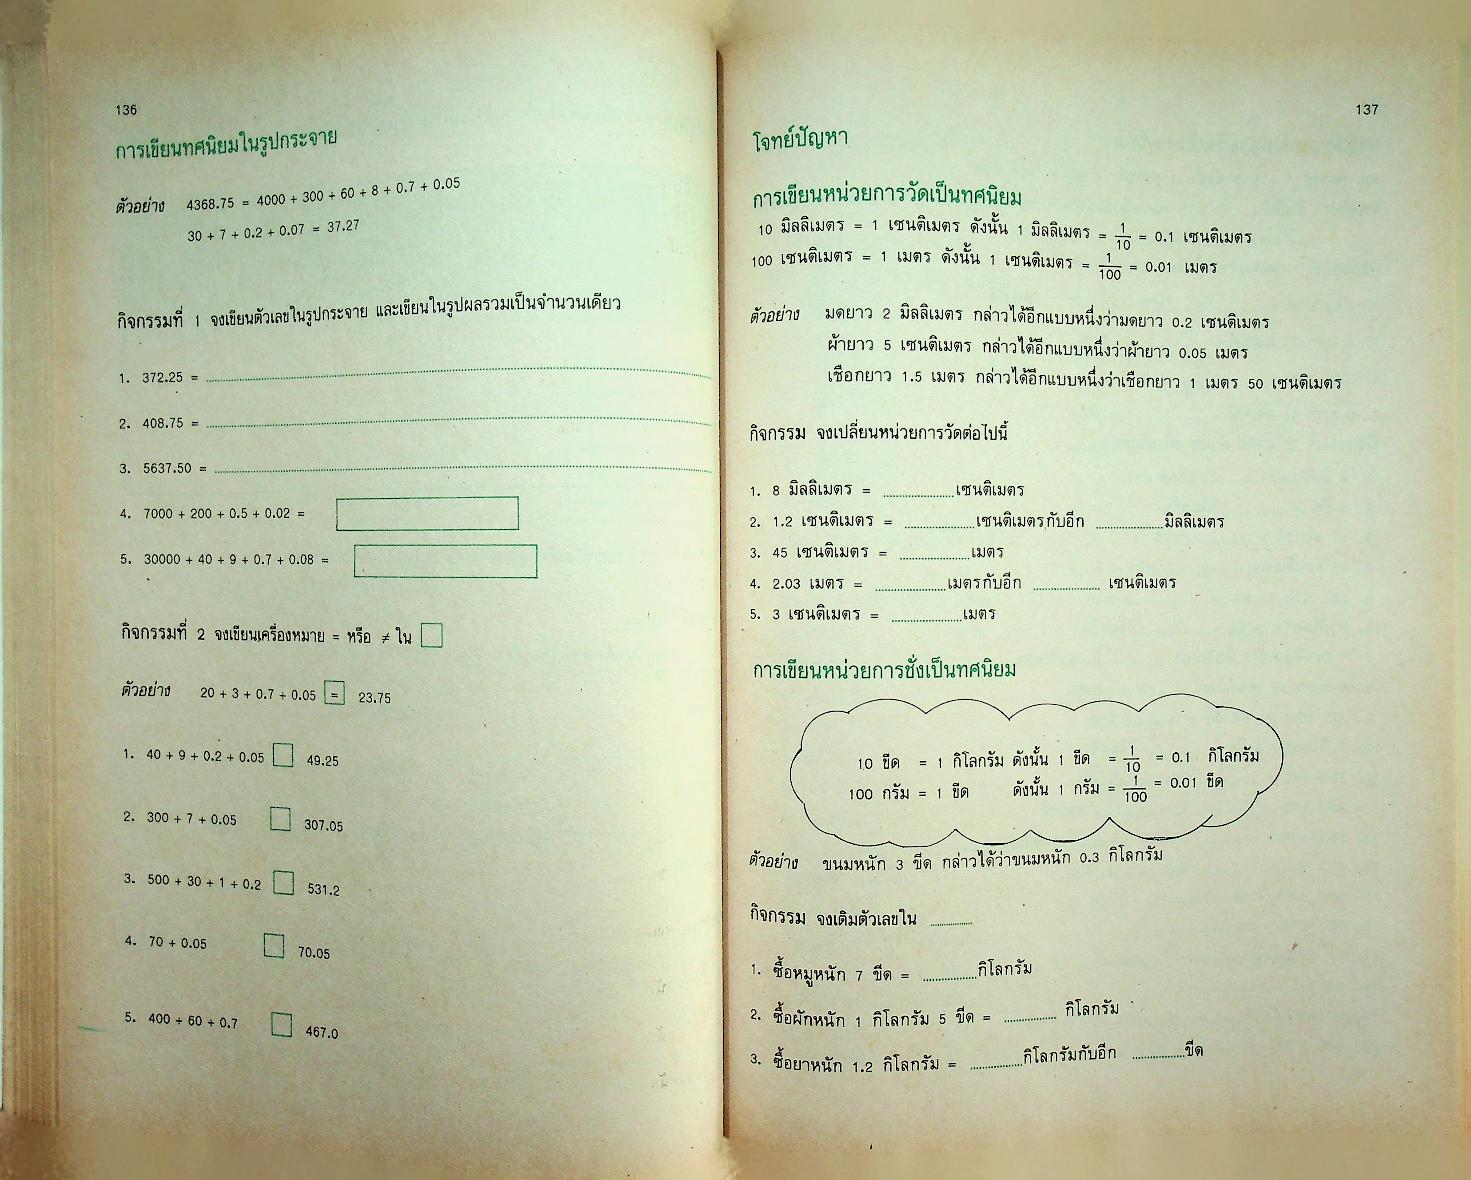 136
การเขียนทศนิยมในรูปกระจาย
ตัวอย่าง 4368.75 = 4000 + 300 + 60 + 8 + 0.7 + 0.05
30 + 7 + 0.2 + 0.07 = 37.27
กิจกรรมที่ 1 จงเขียนตัวเลขในรูปกระจาย และเขียนในรูปผลรวมเป็นจำนวนเดียว
1. 372.25 = ....................
2. 408.75 = ....................
3. 5637.50 = ....................
4. 7000 + 200 + 0.5 + 0.02 =
5. 30000 + 40 + 9 + 0.7 + 0.08 =
กิจกรรมที่ 2 จงเขียนเครื่องหมาย = หรือ ≠ ใน □
ตัวอย่าง 20 + 3 + 0.7 + 0.05 = 23.75
1. 40 + 9 + 0.2 + 0.05 □ 49.25
2. 300 + 7 + 0.05 □ 307.05
3. 500 + 30 + 1 + 0.2 □ 531.2
4. 70 + 0.05 □ 70.05
5. 400 + 60 + 0.7 □ 467.0
137
โจทย์ปัญหา
การเขียนหน่วยการวัดเป็นทศนิยม
10 มิลลิเมตร = 1 เซนติเมตร ดังนั้น 1 มิลลิเมตร = 1/10 = 0.1 เซนติเมตร
100 เซนติเมตร = 1 เมตร ดังนั้น 1 เซนติเมตร = 1/100 = 0.01 เมตร
ตัวอย่าง มดยาว 2 มิลลิเมตร กล่าวได้อีกแบบหนึ่งว่ามดยาว 0.2 เซนติเมตร
ผ้ายาว 5 เซนติเมตร กล่าวได้อีกแบบหนึ่งว่าผ้ายาว 0.05 เมตร
เชือกยาว 1.5 เมตร กล่าวได้อีกแบบหนึ่งว่าเชือกยาว 1 เมตร 50 เซนติเมตร
กิจกรรม จงเปลี่ยนหน่วยการวัดต่อไปนี้
1. 8 มิลลิเมตร = ..........เซนติเมตร
2. 1.2 เซนติเมตร = ..........เซนติเมตรกับอีก ..........มิลลิเมตร
3. 45 เซนติเมตร = ..........เมตร
4. 2.03 เมตร = ..........เมตรกับอีก .......... เซนติเมตร
5. 3 เซนติเมตร = ..........เมตร
การเขียนหน่วยการชั่งเป็นทศนิยม
10 ขีด = 1 กิโลกรัม ดังนั้น 1 ขีด = 1/10 = 0.1 กิโลกรัม
100 กรัม = 1 ขีด ดังนั้น 1 กรัม = 1/100 = 0.01 ขีด
ตัวอย่าง ขนมหนัก 3 ขีด กล่าวได้ว่าขนมหนัก 0.3 กิโลกรัม
กิจกรรม จงเติมตัวเลขใน ..........
1. ซื้อหมูหนัก 7 ขีด = ..........กิโลกรัม
2. ซื้อผักหนัก 1 กิโลกรัม 5 ขีด = .......... กิโลกรัม
3. ซื้อยาหนัก 1.2 กิโลกรัม = ..........กิโลกรัมกับอีก ..........ขีด